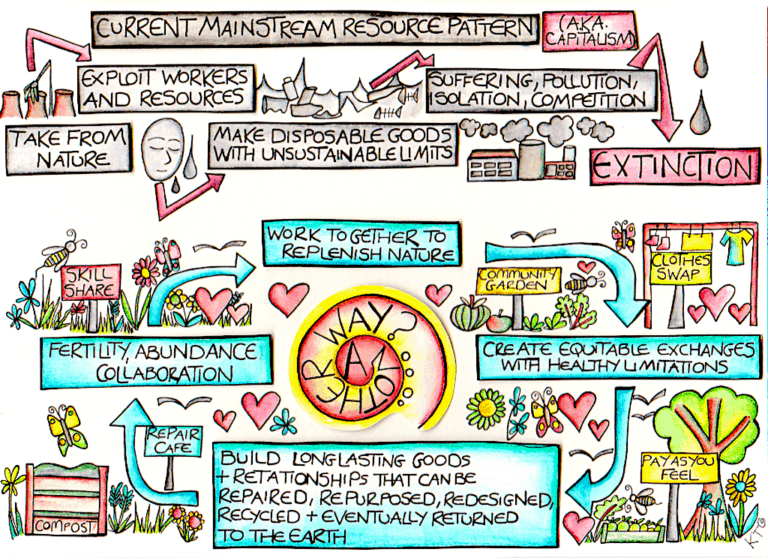 CURRENT MAINSTREAM RESOURCE PATTERN
(A.K.A.
CAPITALISM)
EXPLOIT WORKERS
AND RESOURCES
SUFFERING, POLLUTION,
ISOLATION, COMPETITION
TAKE FROM
NATURE
MAKE DISPOSABLE GOODS
WITH UNSUSTAINABLE LIMITS
EXTINCTION
WORK TOGETHER TO
REPLENISH NATURE
SKILL
SHARE
COMMUNITY
GARDEN
CLOTHES
SWAP
ANOTHER WAY?...
FERTILITY, ABUNDANCE
COLLABORATION
CREATE EQUITABLE EXCHANGES
WITH HEALTHY LIMITATIONS
REPAIR
CAFE
BUILD LONGLASTING GOODS
+ RETATIONSHIPS THAT CAN BE
REPAIRED, REPURPOSED, REDESIGNED,
RECYCLED + EVENTUALLY RETURNED
TO THE EARTH
PAY AS YOU
FEEL
COMPOST